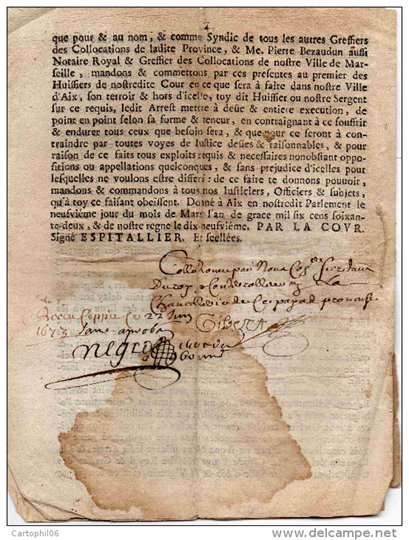 4
que pour & au nom, & comme Syndic de tous les autres Greffiers
des Collocations de ladite Province, & Me. Pierre Bezaudun aussi
Notaire Royal & Greffier des Collocations de nostre Ville de Mar-
seille, mandons & commettons par ces presentes au premier des
Huissiers de nostredite Cour en ce que sera à faire dans nostre Ville
d'Aix, son terroir & hors d'icelle, toy dit Huissier ou nostre Sergent
sur ce requis, ledit Arrest metre à deuë & entiere execution, de
point en point selon sa forme & teneur, en contraignant à ce souffrir
& endurer tous ceux que besoin sera, & que pour ce seront à con-
traindre par toutes voyes de Iustice deuës & raisonnables, & pour
raison de ce faits tous exploits requis & necessaires nonobstant oppo-
sitions ou appellations quelconques, & sans prejudice d'icelles pour
lesquelles ne voulons estre differé : de ce faire te donnons pouvoir,
mandons & commandons à tous nos Iusticiers, Officiers & subjets,
qu'à toy ce faisant obeïssent. Doné à Aix en nostredit Parlement le
neufviéme jour du mois de Mars l'an de grace mil six cens soixan-
te-deux, & de nostre regne le dix-neufviéme. PAR LA COVR.
Signé ESPITALLIER. Et scellées.
Collationné par Nous
Gilbert
1673
negre
Cartophil06
www.delcampe.net